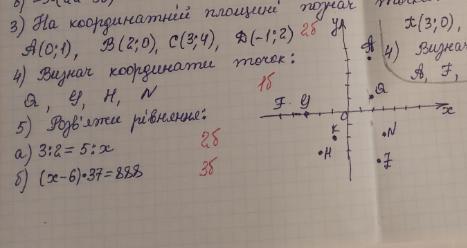 3) На координатній площині познач точки
A(0;1), B(2;0), C(3;4), D(-1;2) 2б
4) Визнач координати точок: 1б
Q, Y, H, N
5) Розв'яжи рівняння:
а) 3:2=5:x 2б
б) (x-6)•37=888 3б
K(3;0),
4) Визнач
A, F,
y
A
Q
F Y
0
x
K
N
H
F